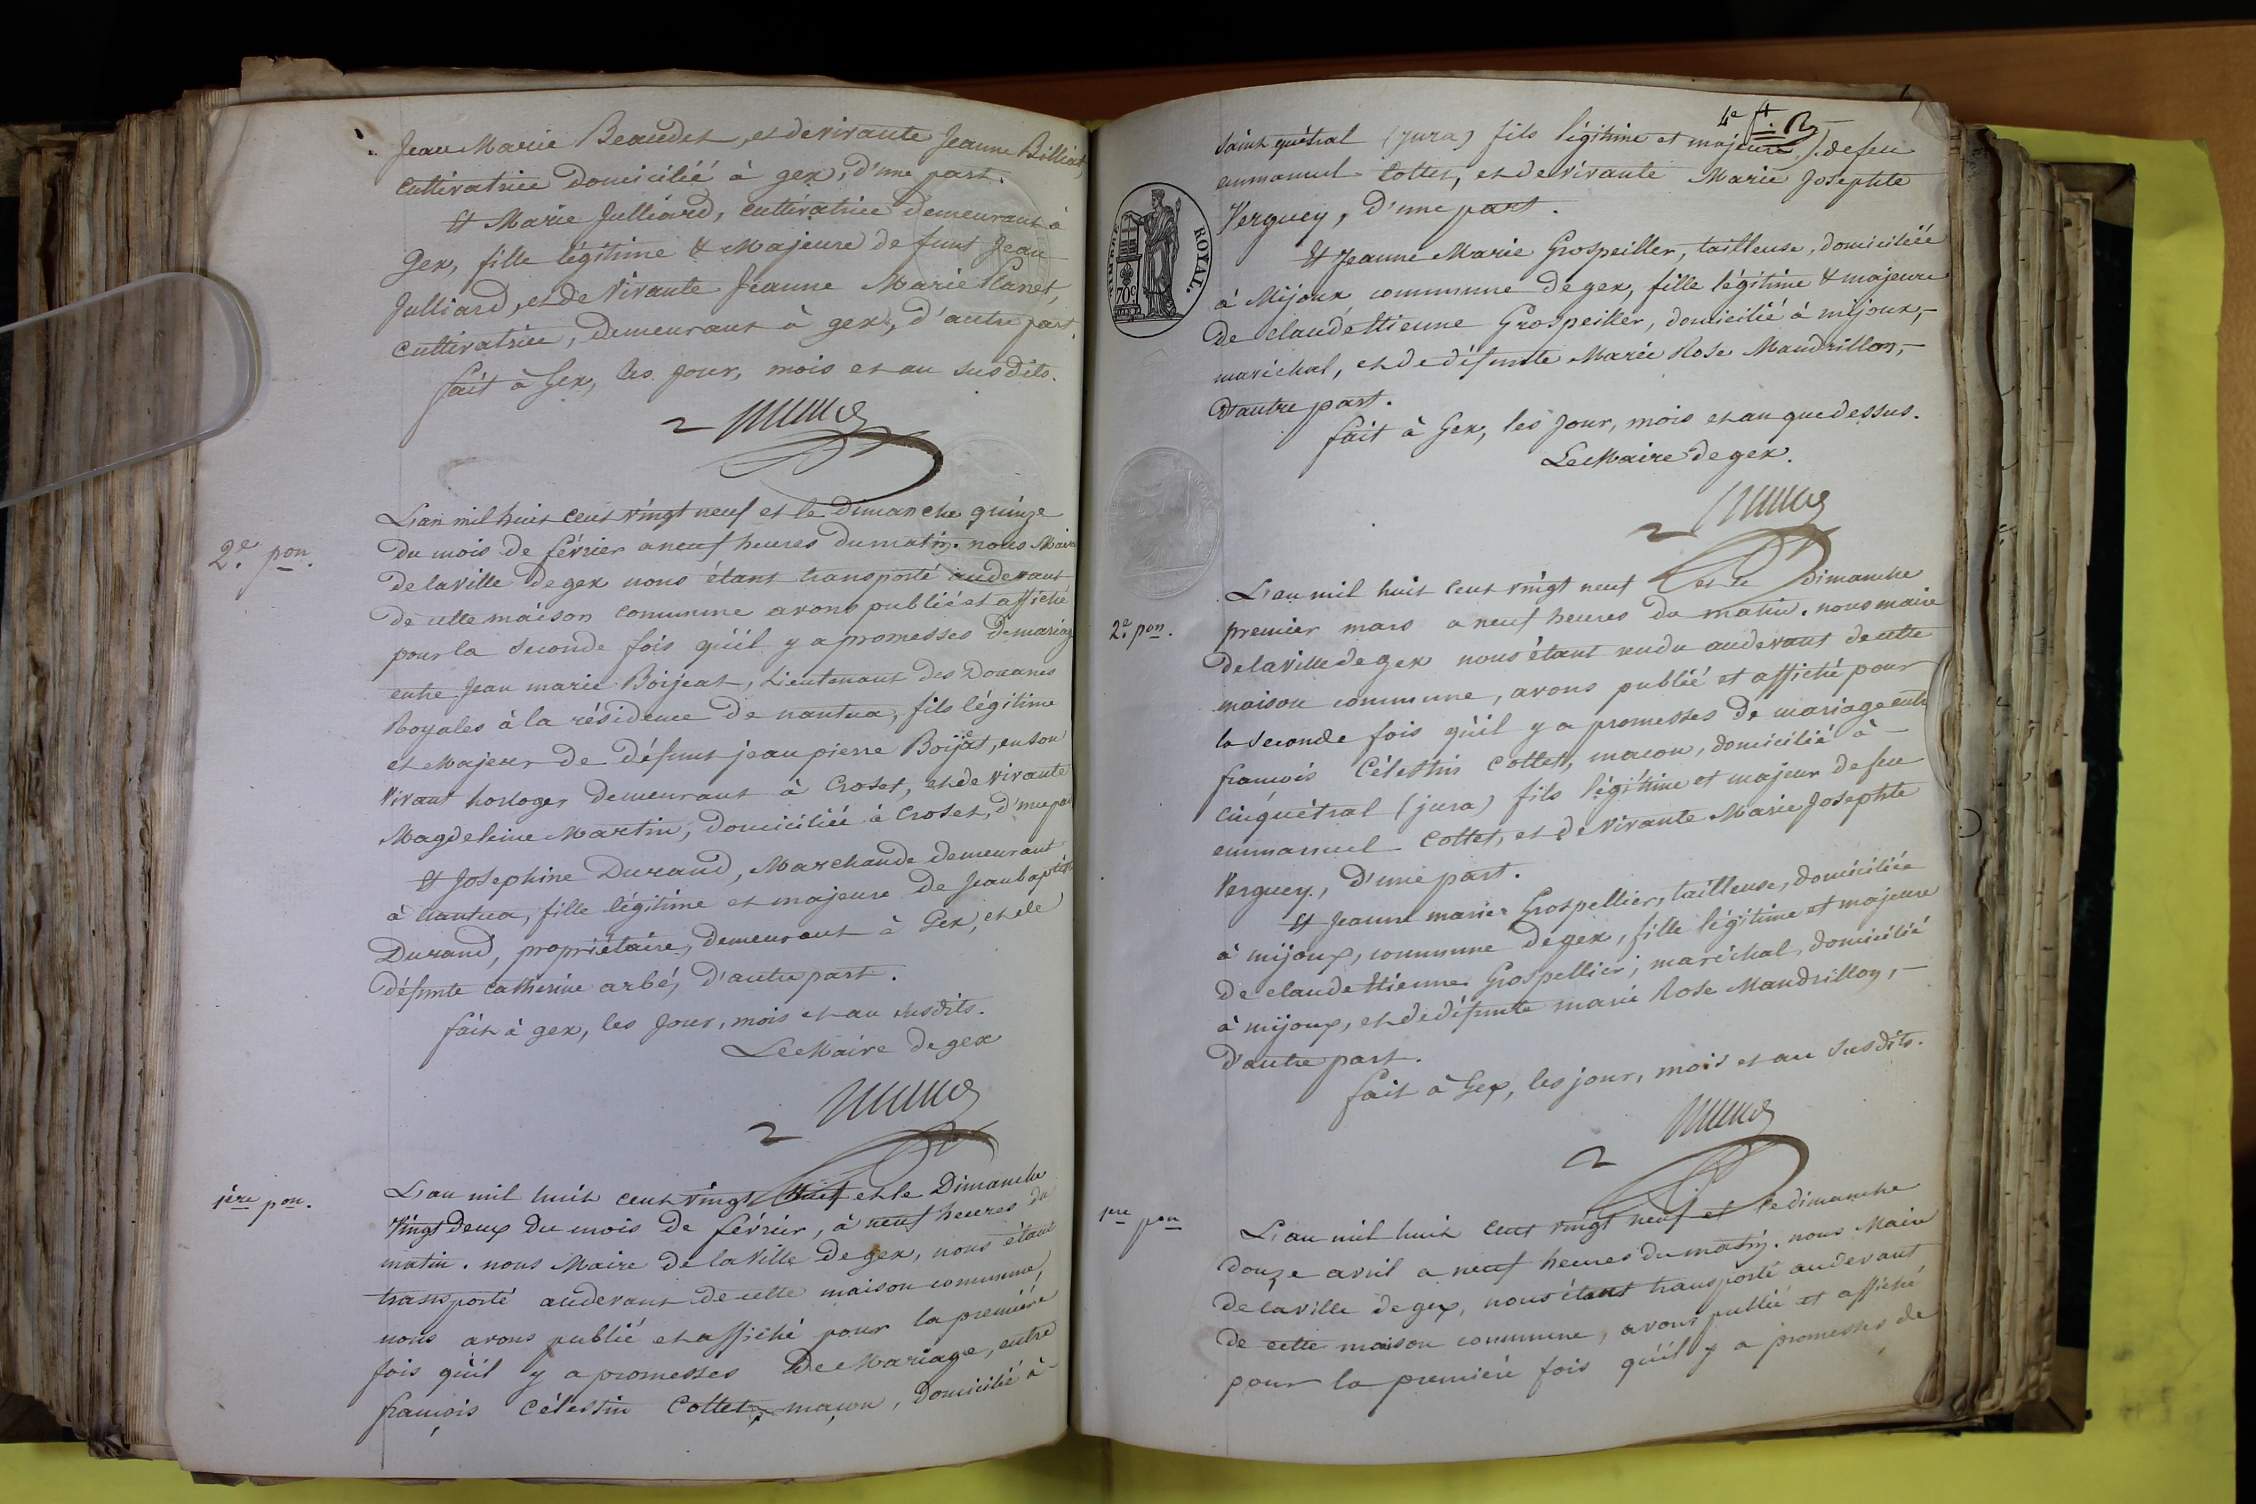 Jean Marie Beaudet, et de vivante Jeanne Billiat,
cultivatrice domiciliée à gex, d'une part.
Et Marie Julliard, cultivatrice demeurant à
Gex, fille légitime & Majeure de funt Jean
Julliard, et de Vivante Jeanne Marie Panet,
cultivatrice, demeurant à gex, d'autre part.
fait à Gex, les jour, mois et an susdits.
2e. pon.
L'an mil huit cent vingt neuf et le Dimanche quinze
du mois de février a neuf heures du matin. nous Maire
de la ville de gex nous étant transporté audevant
de cette maison commune avons publié et affiché
pour la seconde fois qu'il y a promesses de mariage
entre Jean marie Boijeat, Lieutenant des Douanes
Royales à la résidence de nantua, fils légitime
et Majeur de défunt jean pierre Boijeat, en son
vivant horloger demeurant à Croset, et de vivante
Magdeleine Martin, domiciliée à Croset, d'une part
Et Josephine Durand, Marchande demeurant
à nantua, fille légitime et majeure de Jean baptiste
Durand, propriétaire, demeurant à Gex, et de
défunte Catherine arbé, d'autre part.
fait à gex, les jour, mois et an susdits.
Le Maire de gex
1ère pon.
L'an mil huit cent vingt neuf et le Dimanche
vingt deux du mois de février, à neuf heures du
matin. nous Maire de la Ville de gex, nous étant
transporté audevant de cette maison commune,
nous avons publié et affiché pour la première
fois qu'il y a promesses de Mariage, entre
françois Célestin Cottet, maçon, domicilié à
4e ft.
Saint quétral (jura) fils légitime et majeure). de feu
emmanuel Cottet, et de vivante Marie Josephte
Verguey, d'une part.
Et Jeanne Marie Grospeiller, tailleuse, domiciliée
à Mijoux commune de gex, fille légitime & majeure
de claude Etienne Grospeiller, domicilié à mijoux,
maréchal, et de défunte Marie Rose Mandrillon,
d'autre part.
fait à Gex, les jour, mois et an que dessus.
Le Maire de gex.
TIMBRE ROYAL.
70c
2e. pon.
L'an mil huit cent vingt neuf et le dimanche
premier mars a neuf heures du matin. nous maire
de la ville de gex nous étant rendu audevant de cette
maison commune, avons publié et affiché pour
la seconde fois qu'il y a promesses de mariage entre
françois Célestin Cottet, macon, domicilié à
cinquétral (jura) fils légitime et majeur de feu
emmanuel Cottet, et de vivante Marie Josephte
Verguey, d'une part.
Et Jeanne marie Grospellier, tailleuse, domiciliée
à mijoux, commune de gex, fille légitime et majeure
de claude Etienne Grospellier, maréchal, domicilié
à mijoux, et de défunte marie Rose Mandrillon,
d'autre part.
fait à Gex, les jour, mois et an susdits.
1re pon
L'an mil huit cent vingt neuf et le dimanche
douze avril a neuf heures du matin. nous Maire
de la ville de gex, nous étant transporté audevant
de cette maison commune, avons publié et affiché
pour la première fois qu'il y a promesses de